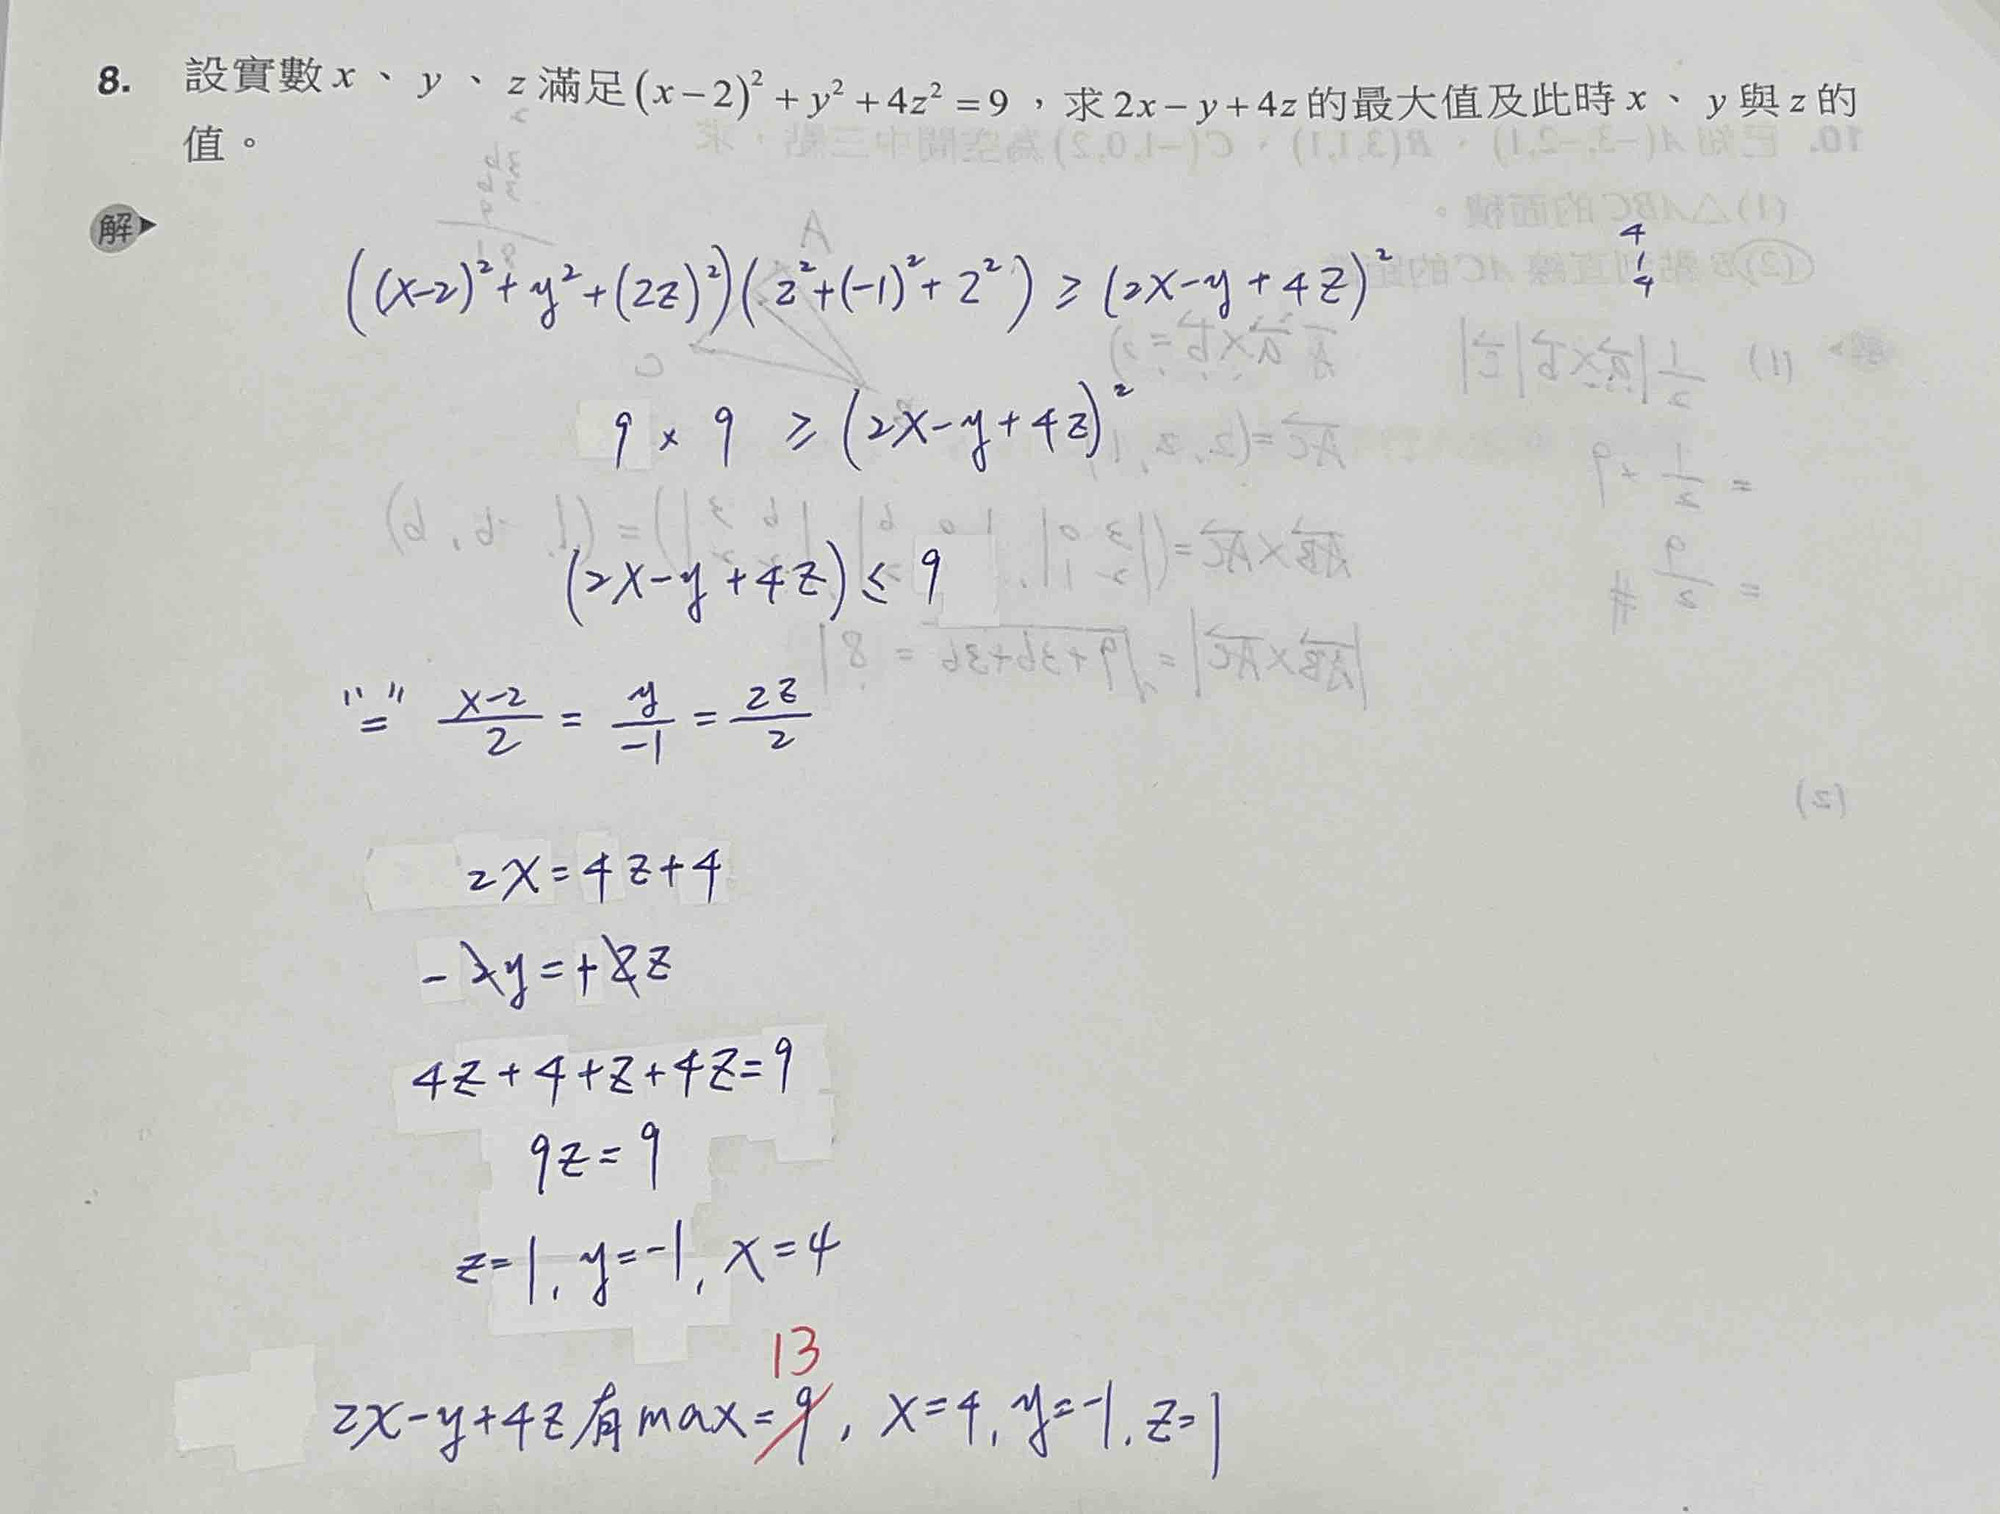 8. 設實數 x、y、z 滿足 (x-2)²+y²+4z²=9，求 2x-y+4z 的最大值及此時 x、y 與 z 的
值。
解
((x-2)²+y²+(2z)²)(2²+(-1)²+2²) ≥ (2x-y+4z)²
4
1
4
9 × 9 ≥ (2x-y+4z)²
(2x-y+4z) ≤ 9
"=" (x-2)/2 = y/-1 = 2z/2
2x=4z+4
-2y=+2z
4z+4+z+4z=9
9z=9
z=1, y=-1, x=4
13
2x-y+4z有max=9, x=4, y=-1, z=1